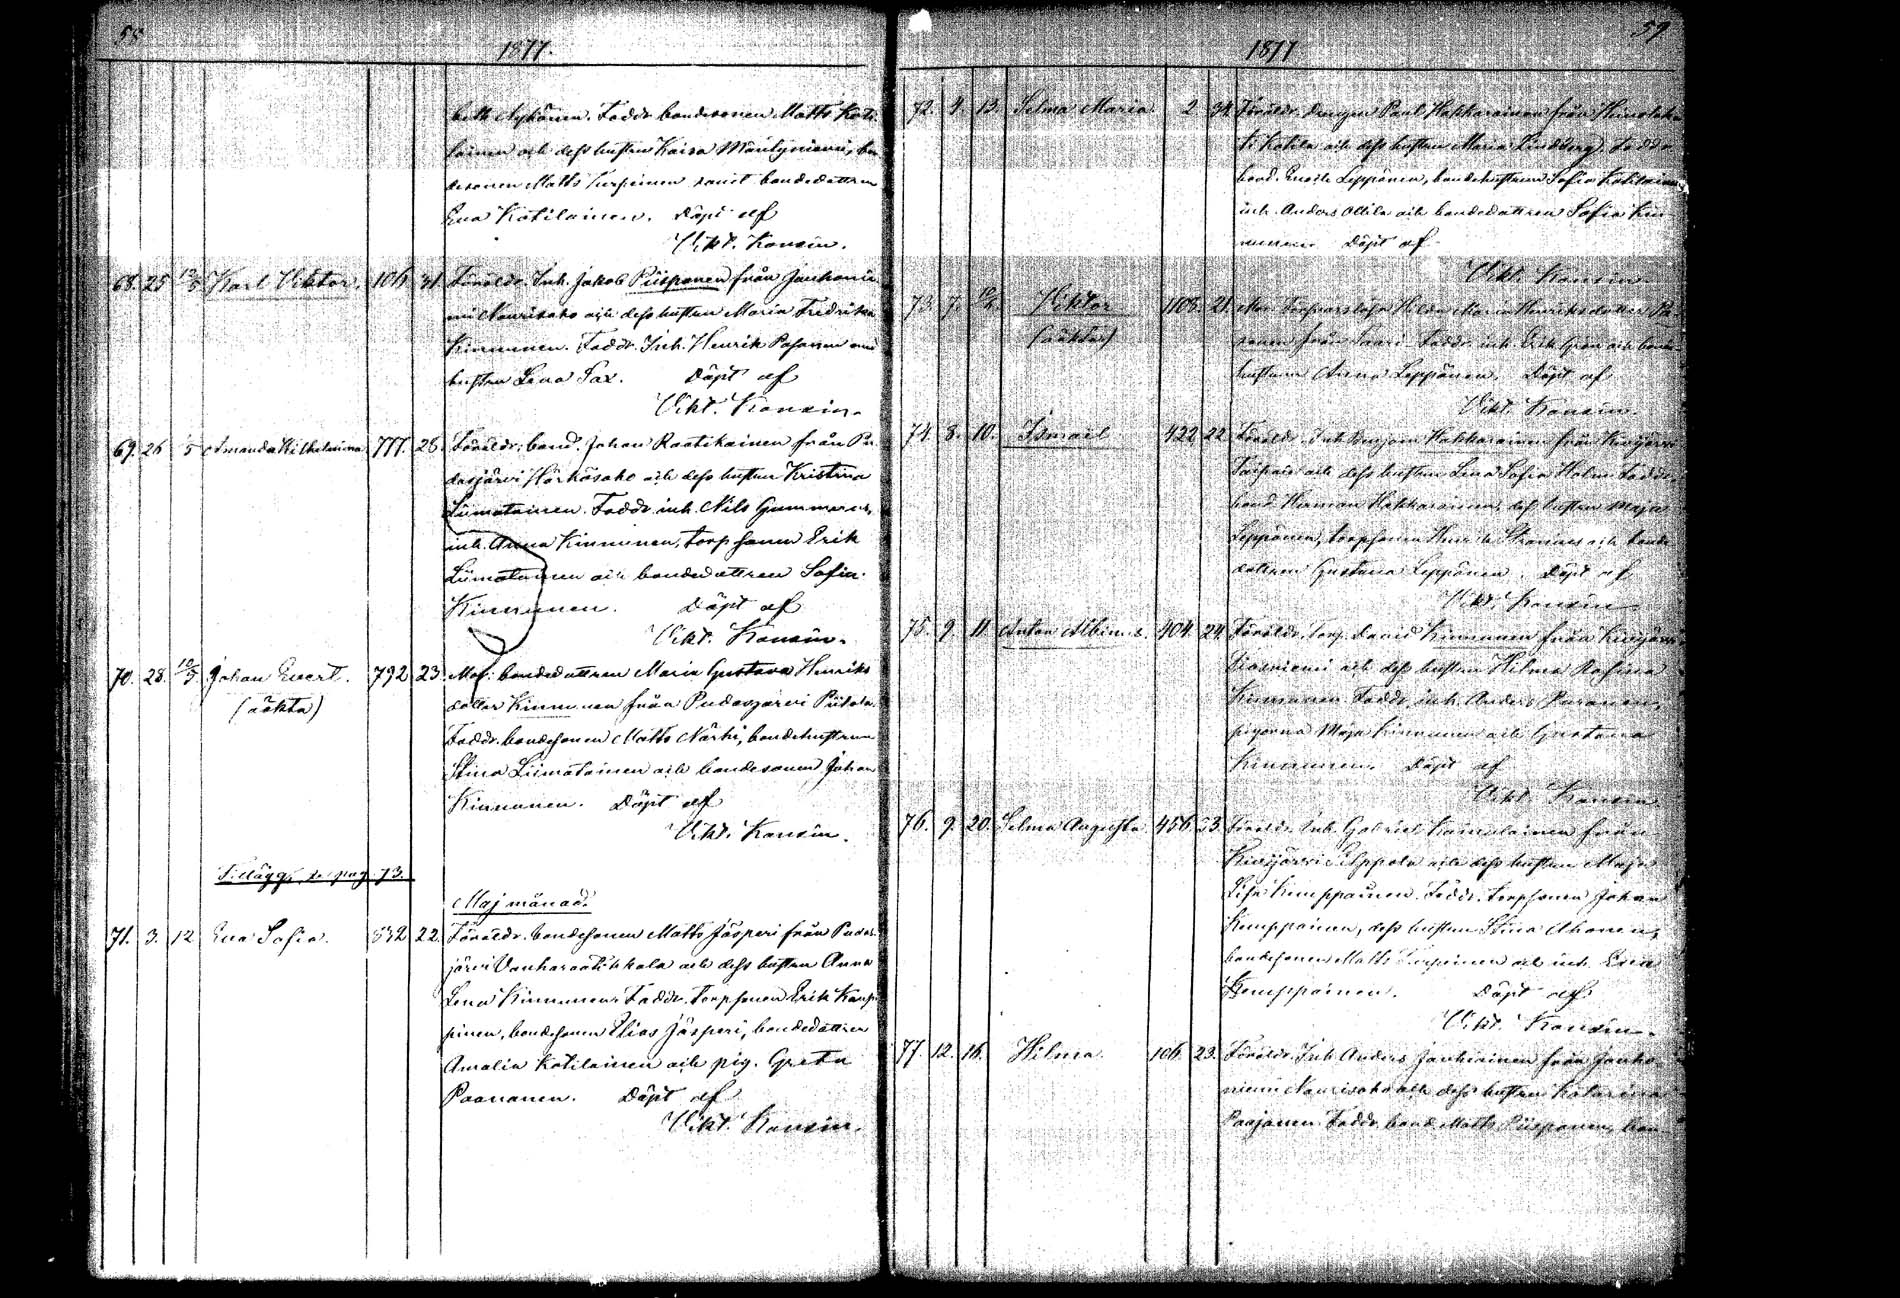 58
1877.
beth Nykänen. Faddr. bondesonen Matts Koti-
lainen och dess hustru Kaisa Mäntyniemi, bon-
desonen Matts Turpeinen samt bondedottren
Eva Kotilainen. Döpt af
Vikt. Konsin.
68. 25 12/5 Karl Viktor. 106 31 Föräldr. Inh. Jakob Piispanen från Jauhonie-
mi Naurisaho och dess hustru Maria Fredrika
Kinnunen. Faddr. Inh. Henrik Pasanen och
hustru Lena Sax. Döpt af
Vikt. Konsin.
69. 26 /5 Amanda Wilhelmina 777. 28. Föräldr. bond. Johan Raatikainen från Pu-
dasjärvi Hörhäsaho och dess hustru Kristina
Liimatainen. Faddr. inh. Nils Gummerus,
inh. Anna Kinnunen, torpsonen Erik
Liimatainen och bondedottren Sofia
Kinnunen. Döpt af
Vikt. Konsin.
70. 28. 10/5 Johan Evert. 792 23. Mod. bondedottren Maria Gustava Henriks
(oäkta) dotter Kinnunen från Pudasjärvi Piitola.
Faddr. bondesonen Matts Närhi, bondehustrun
Stina Liimatainen och bondesonen Johan
Kinnunen. Döpt af
Vikt. Konsin.
Tillägg, se pag. 73.
Maj månad.
71. 3. 12 Eva Sofia. 832 22. Föräldr. bondesonen Matts Jäsperi från Pudas-
järvi Vanharaatikkala och dess hustru Anna
Lena Kinnunen. Faddr. Torpsonen Erik Kaup-
pinen, bondesonen Elias Jäsperi, bondedottren
Amalia Kotilainen och pig. Greta
Paananen. Döpt af
Vikt. Konsin.
59
1877
72. 4. 13. Selma Maria. 2 34. Föräldr. drengen Paul Hakkarainen från
Kotila och dess hustru Maria Lindberg. Faddr.
bond. Enok Leppänen, bondehustrun Sofia Kotilainen,
inh. Anders Ollila och bondedottren Sofia Kin-
nunen. Döpt af
Vikt. Konsin.
73. 7. Viktor 1108. 21. Mod. Hilda Maria Henriksdotter Pa-
(oäkta) sanen från Saari. Faddr. inh. Erik och bonde-
hustrun Anna Leppänen. Döpt af
Vikt. Konsin.
74. 8. 10. Ismael 422 22. Föräldr. Inh. Benjam Hakkarainen från Kivijärvi
och dess hustru Lena Sofia Holm. Faddr.
bond. Herman Hakkarainen, dess hustru Maja
Leppänen, torpsonen Henrik och bonde-
dottren Gustava Leppänen. Döpt af
Vikt. Konsin
75. 9. 11. Anton Albinus. 404. 24. Föräldr. Torp. David Kinnunen från Kivijärvi
och dess hustru Hilma Rosina
Kinnunen. Faddr. inh. Anders Paranen,
pigorna Maja Kinnunen och Gustava
Kinnunen. Döpt af
Vikt. Konsin
76. 9. 20. Selma Augusta 456. 33. Föräldr. Inh. Gabriel Kainulainen från
Kivijärvi Leppälä och dess hustru Maja
Lisa Kemppainen. Faddr. torpsonen Johan
Kemppainen, dess hustru Stina Ahonen,
bondesonen Matts Turpeinen och inh. Eva
Kemppainen. Döpt af
Vikt. Konsin.
77. 12. 16. Hilma. 106. 23. Föräldr. Inh. Anders Jauhiainen från Jauho-
niemi Naurisaho och dess hustru Katarina
Paajanen. Faddr. bond. Matts Piispanen, bon-